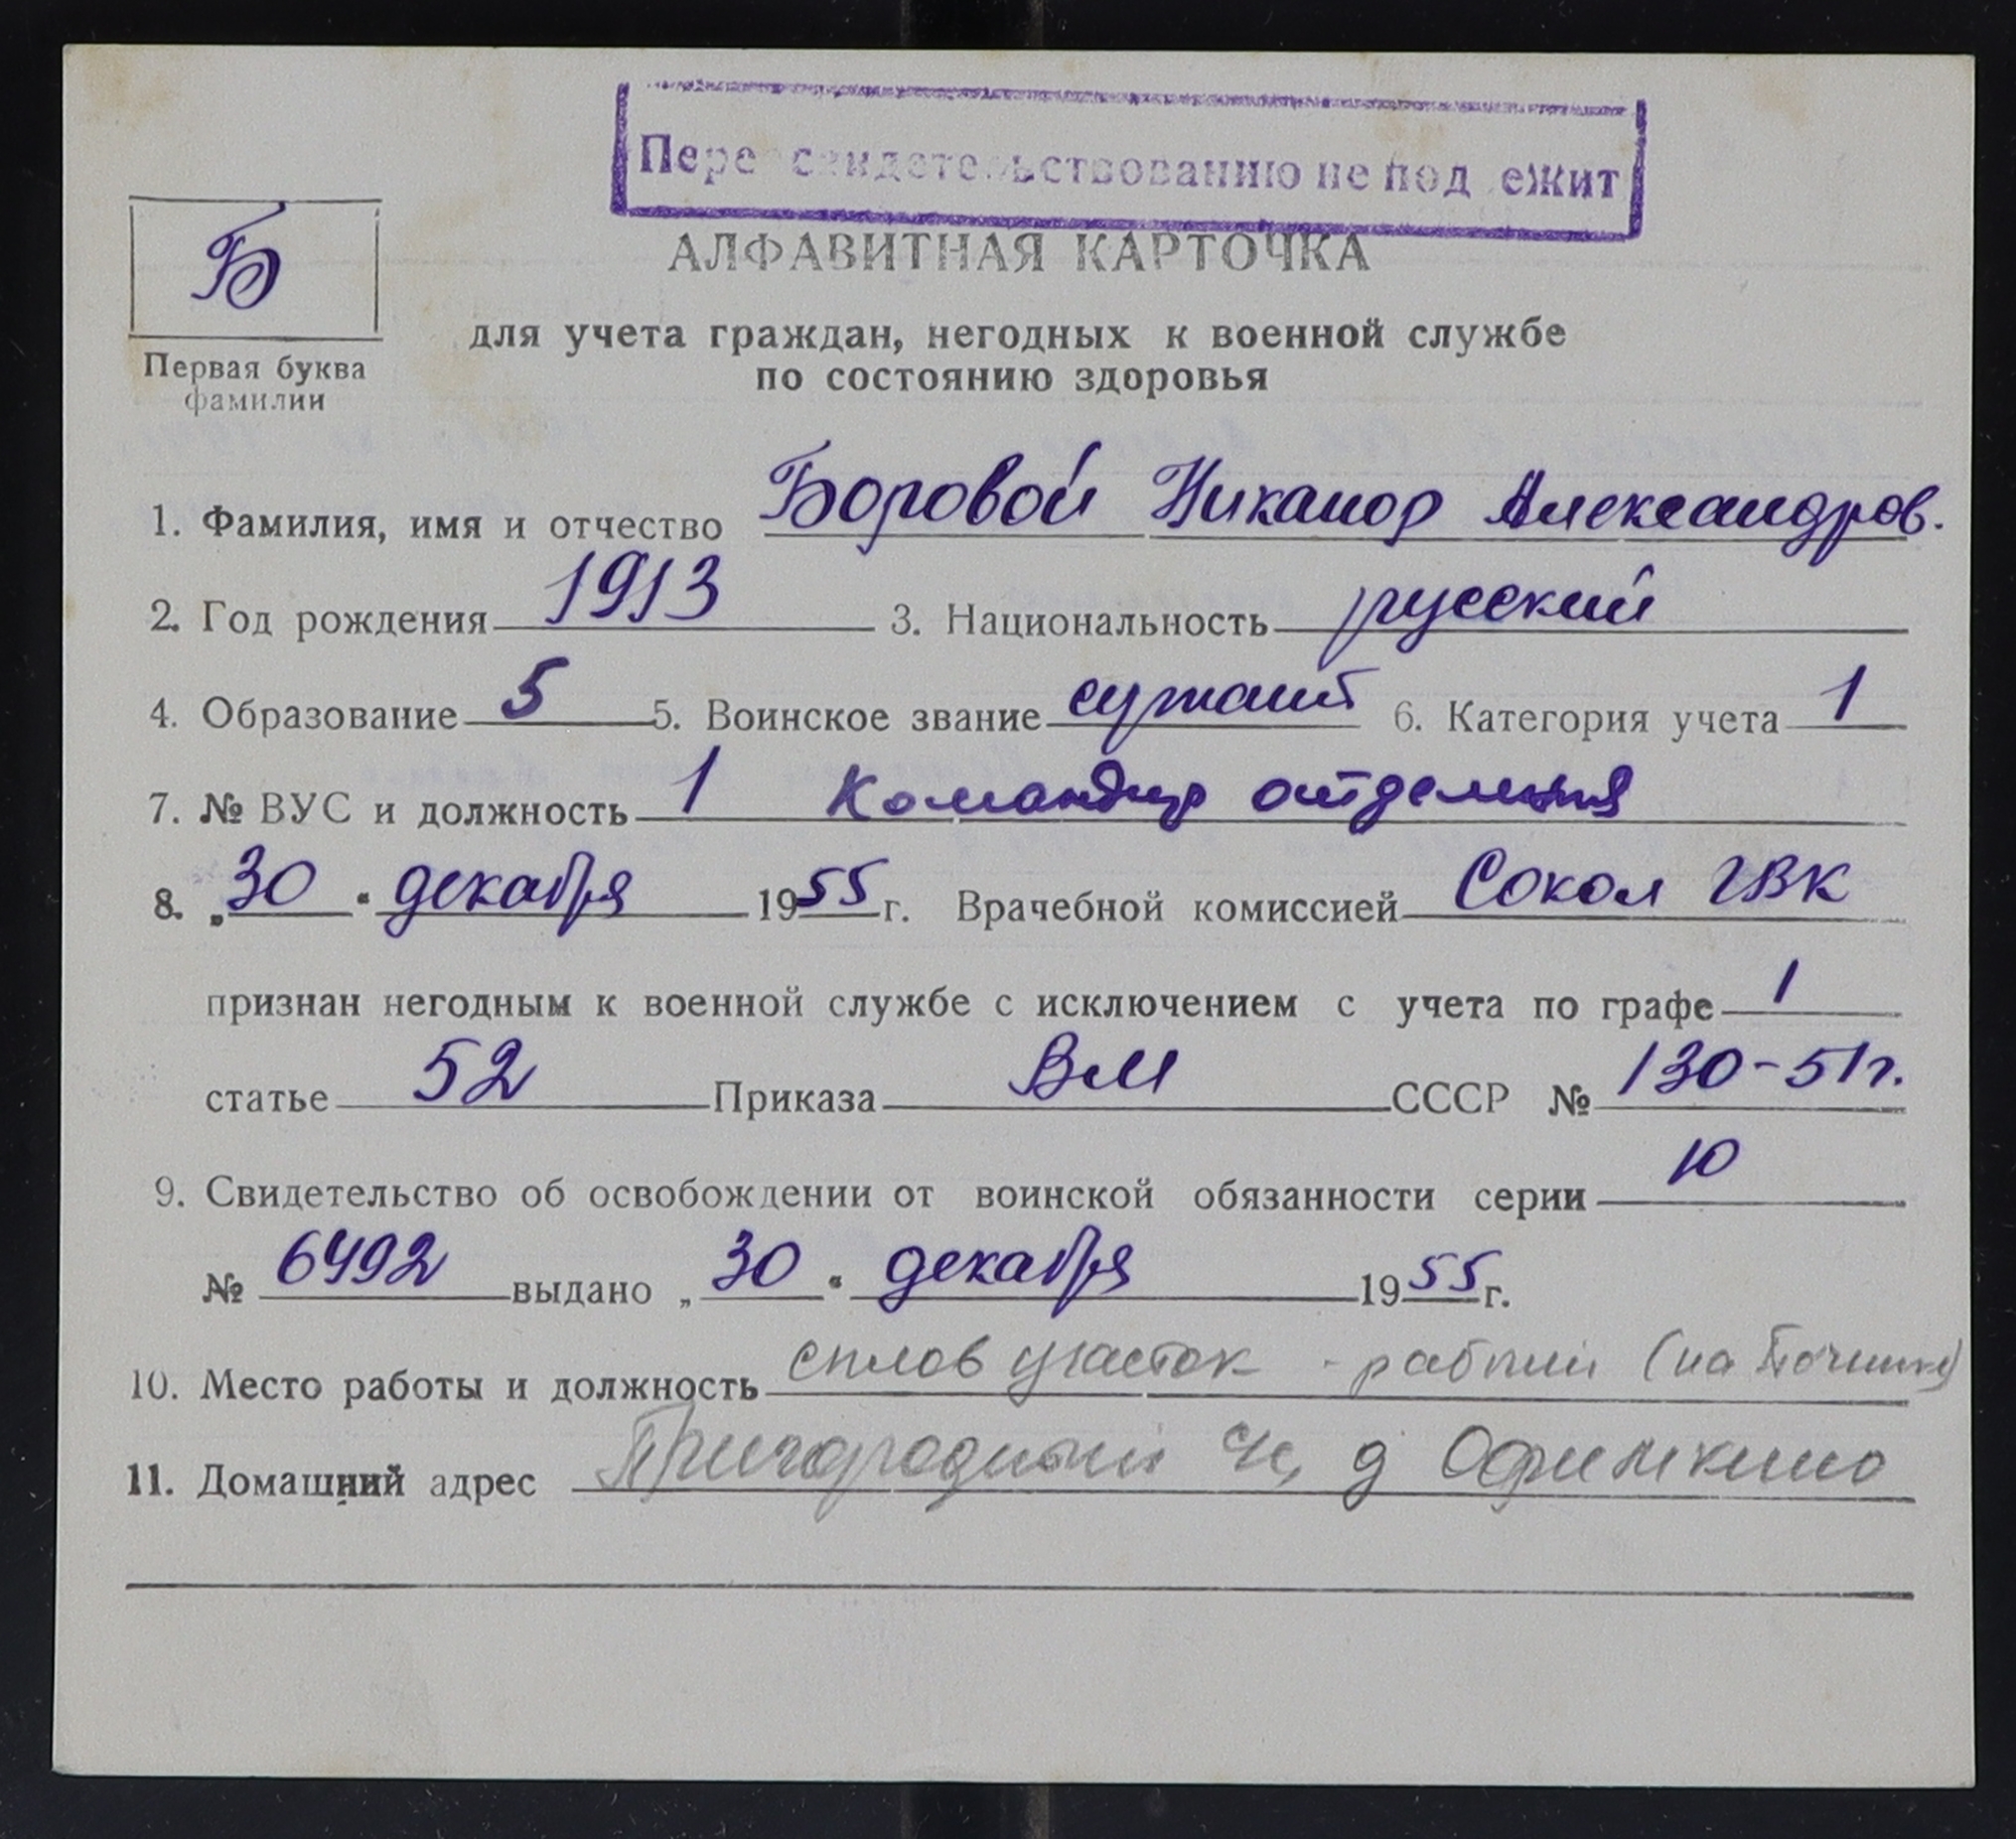 Переосвидетельствованию не подлежит
АЛФАВИТНАЯ КАРТОЧКА
Б
для учета граждан, негодных к военной службе
по состоянию здоровья
Первая буква
фамилии
1. Фамилия, имя и отчество Боровой Никанор Александров.
2. Год рождения 1913 3. Национальность русский
4. Образование 5 5. Воинское звание сержант 6. Категория учета 1
7. № ВУС и должность 1 Командир отделения
8. „30" декабря 1955 г. Врачебной комиссией Сокол ГВК
признан негодным к военной службе с исключением с учета по графе 1
статье 52 Приказа ВМ СССР № 130-51г.
9. Свидетельство об освобождении от воинской обязанности серии Ю
№ 6492 выдано „30" декабря 1955 г.
10. Место работы и должность сплав участок - рабочий (на
11. Домашний адрес Пригородный с/с, д Офимкино